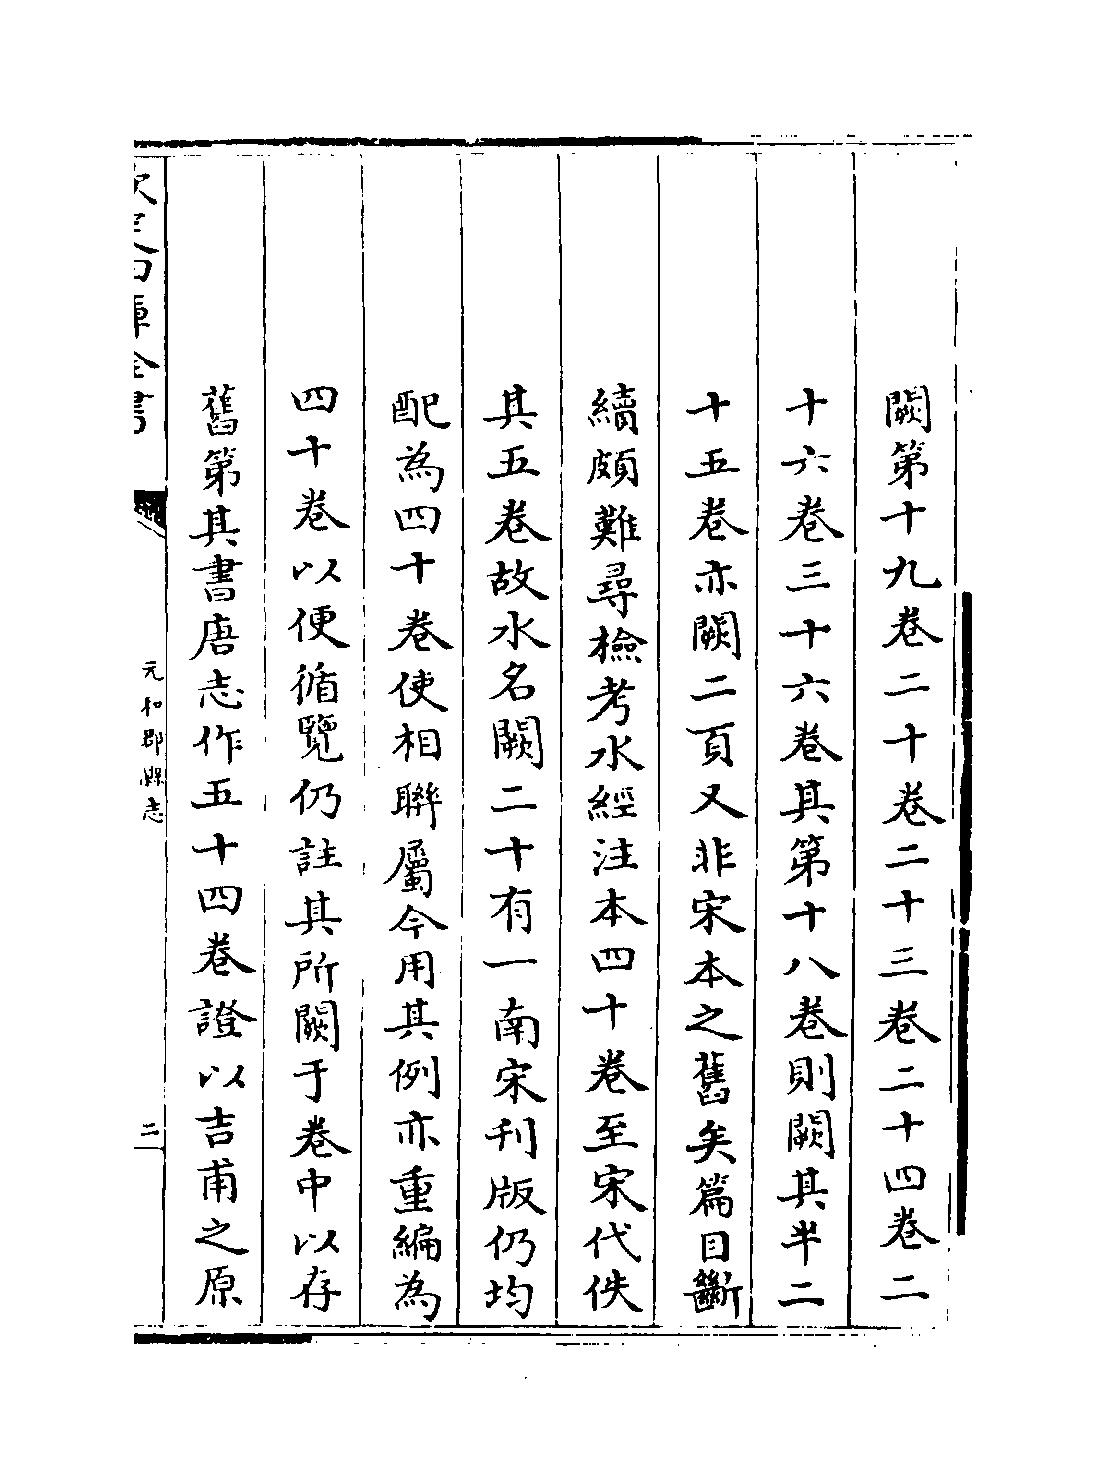 闕第十九卷二十卷二十三卷二十四卷二
十六卷三十六卷其第十八卷則闕其半二
十五卷亦闕二頁又非宋本之舊矣篇目斷
續頗難尋檢考水經注本四十卷至宋代佚
其五卷故水名闕二十有一南宋刊版仍均
配為四十卷使相聯屬今用其例亦重編為
四十卷以便循覽仍註其所闕于卷中以存
舊第其書唐志作五十四卷證以吉甫之原
欽定四庫全書
元和郡縣志
二